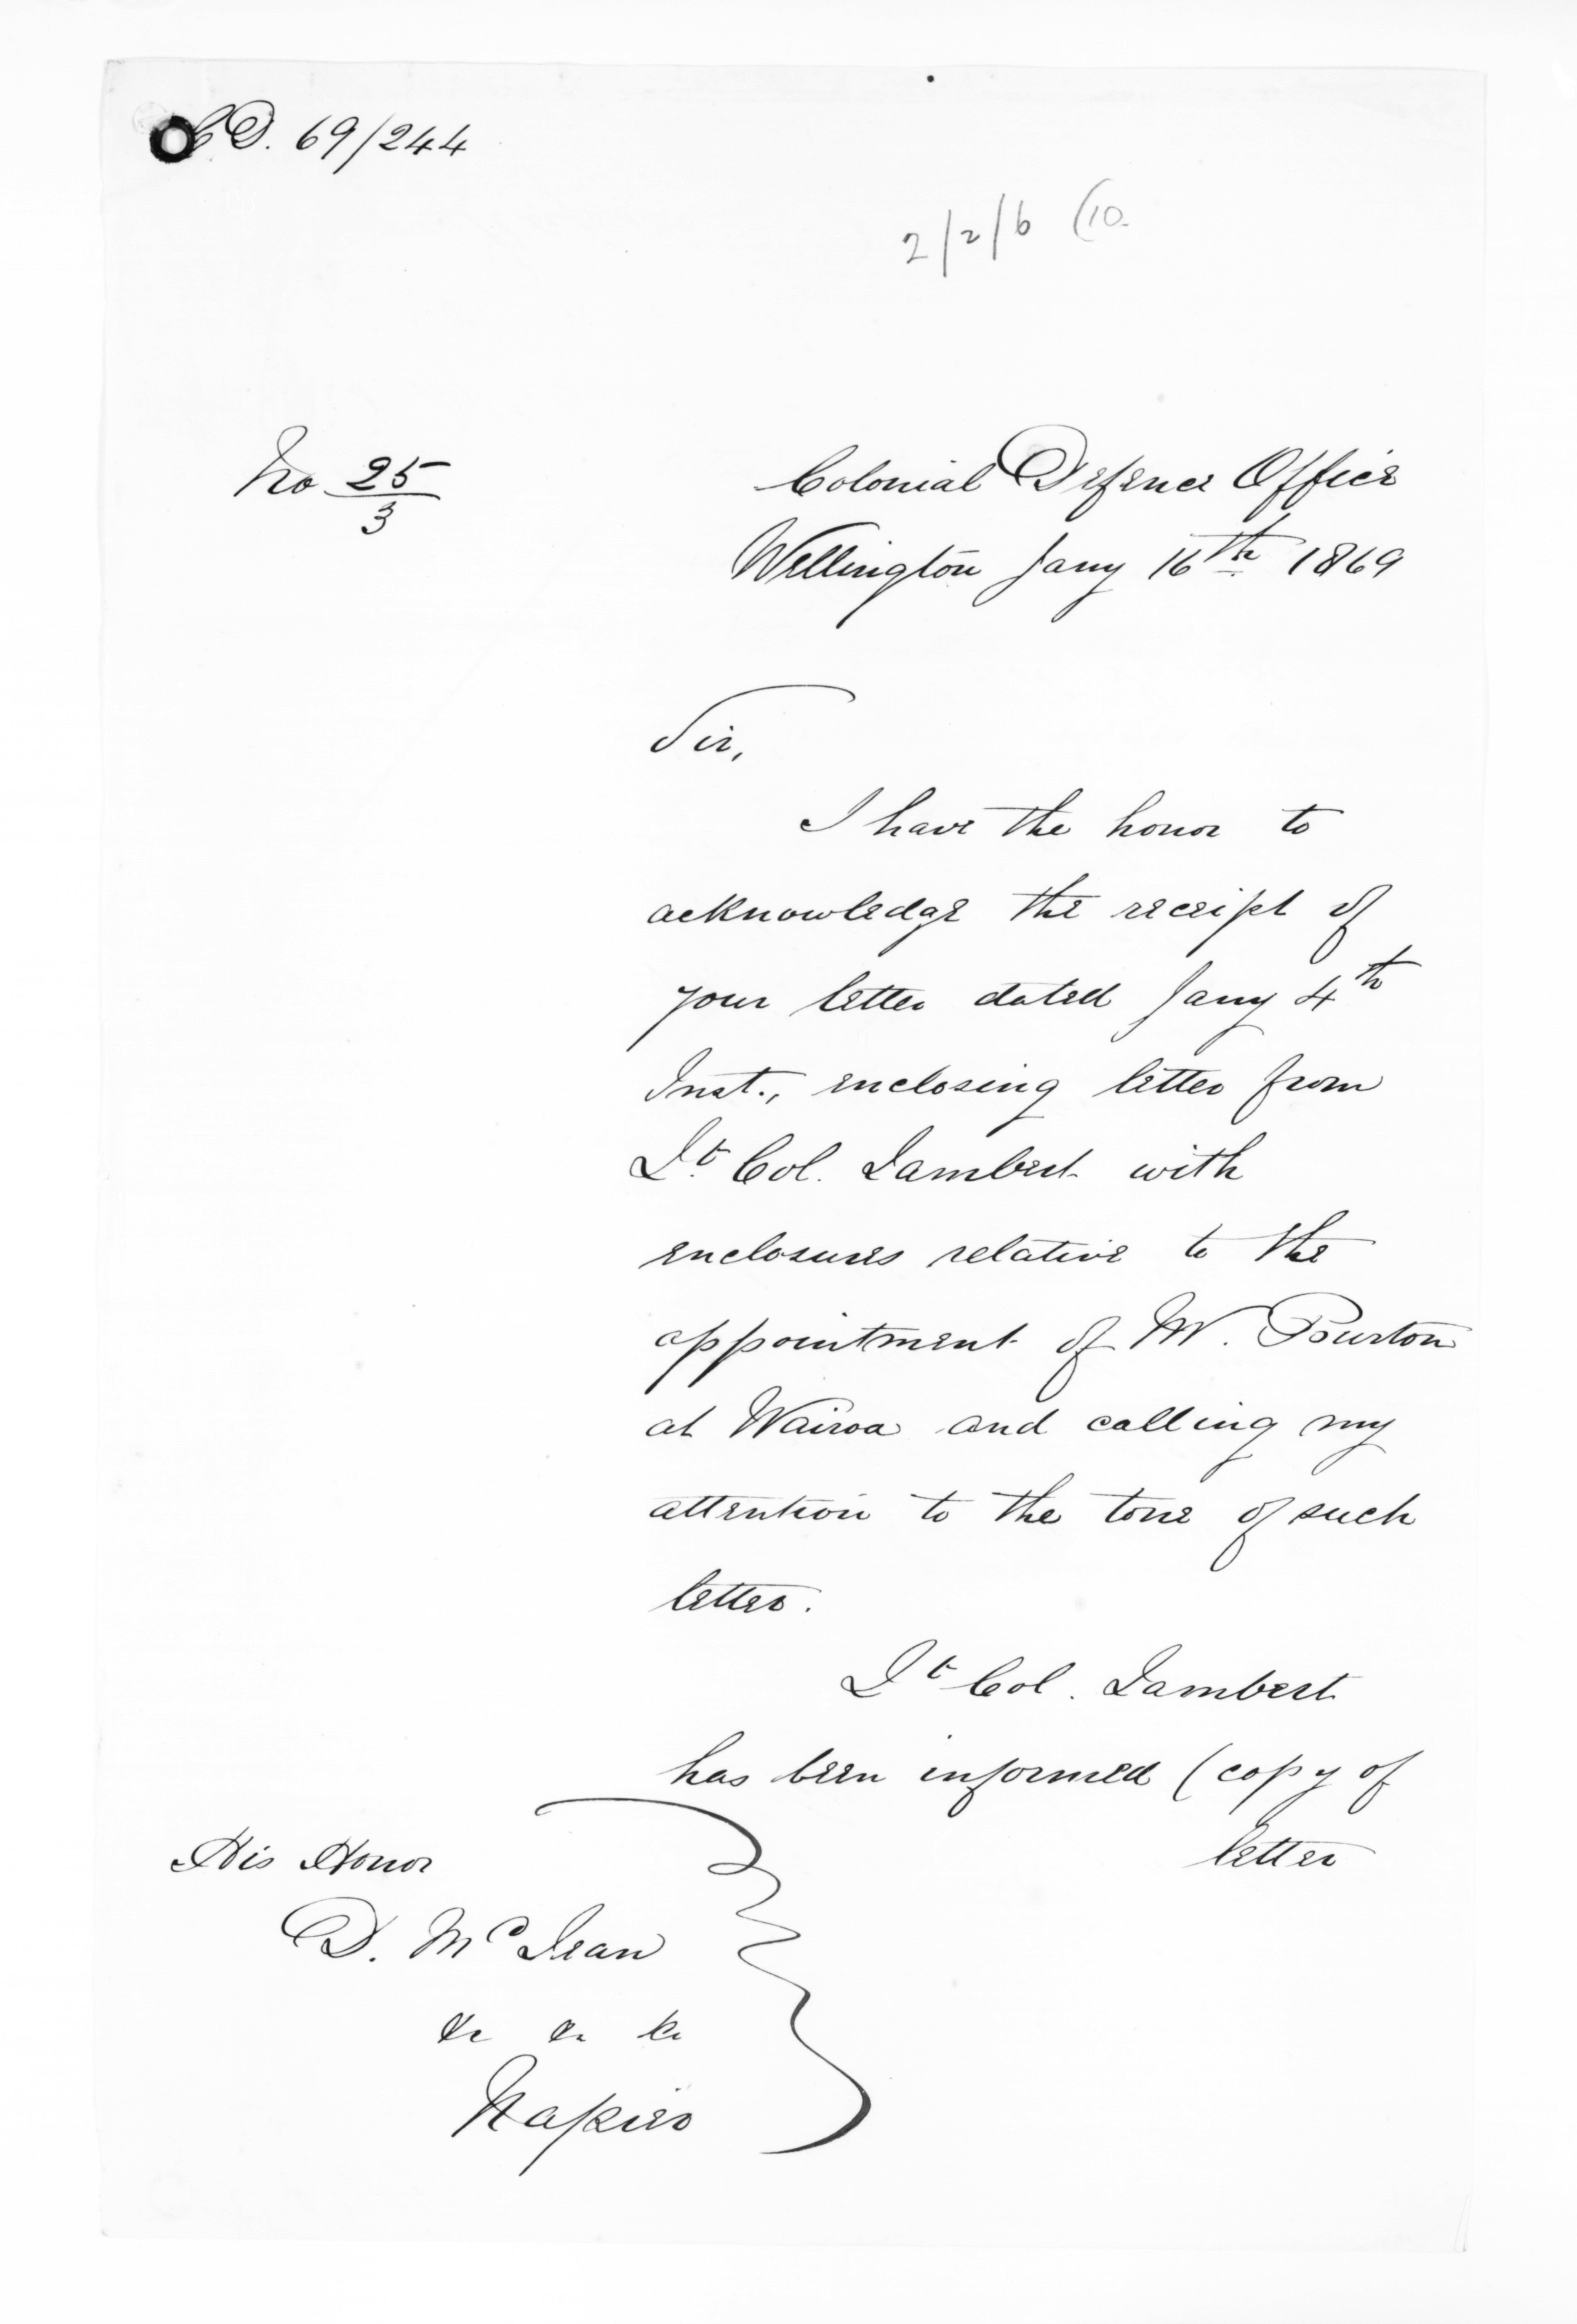 CD. 69/244
2/2/6 (10.
No 25/3
Colonial Defence Office
Wellington Jany 16th 1869
Sir,
I have the honor to
acknowledge the receipt of
your letter dated Jany 4th
Inst., enclosing letter from
Lt Col. Lambert with
enclosures relative to the
appointment of Mr. Burton
at Wairoa and calling my
attention to the tone of such
letter.
Lt Col. Lambert
has been informed (copy of
letter
His Honor
D. McLean
&c &c &c
Napier